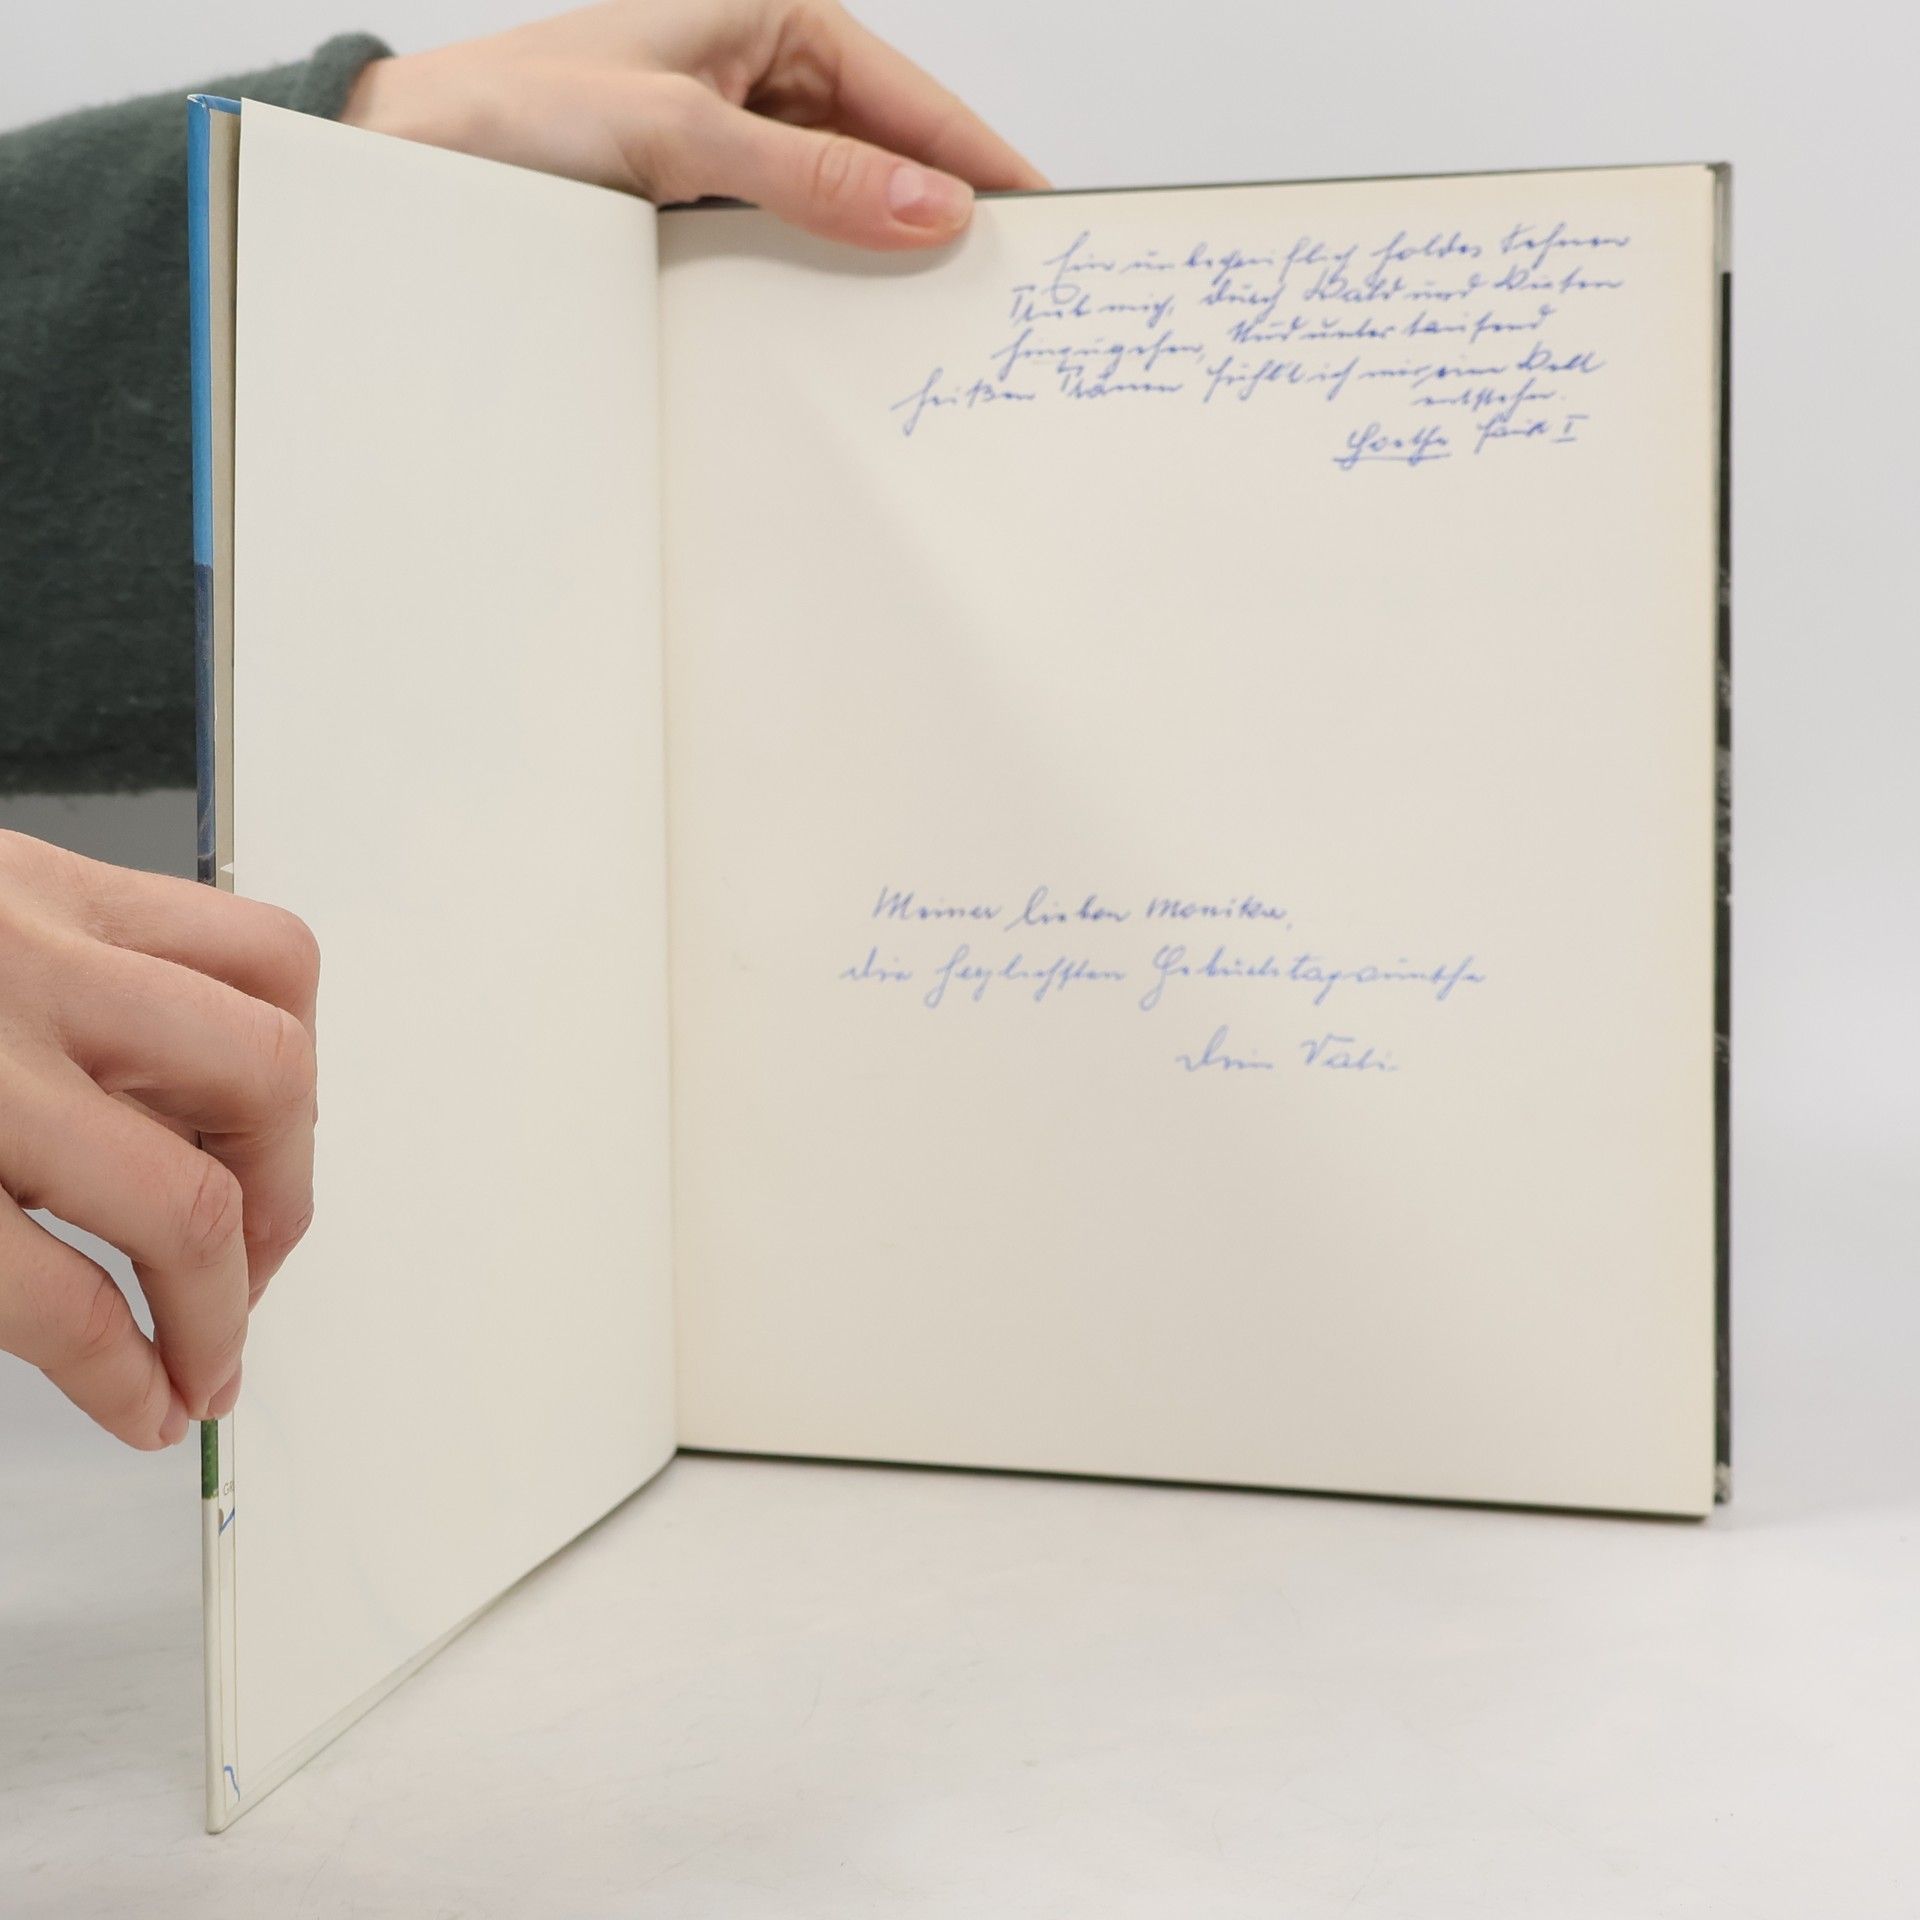 Ein unbegreiflich holdes Sehnen
Trieb mich, durch Wald und Wiesen
hinzugehen, Und unter tausend
heißen Tränen fühlt ich mir eine Welt
entstehn.
Goethe Faust I
Meiner lieben Monika,
die herzlichsten Geburtstagswünsche
Dein Vati
GR